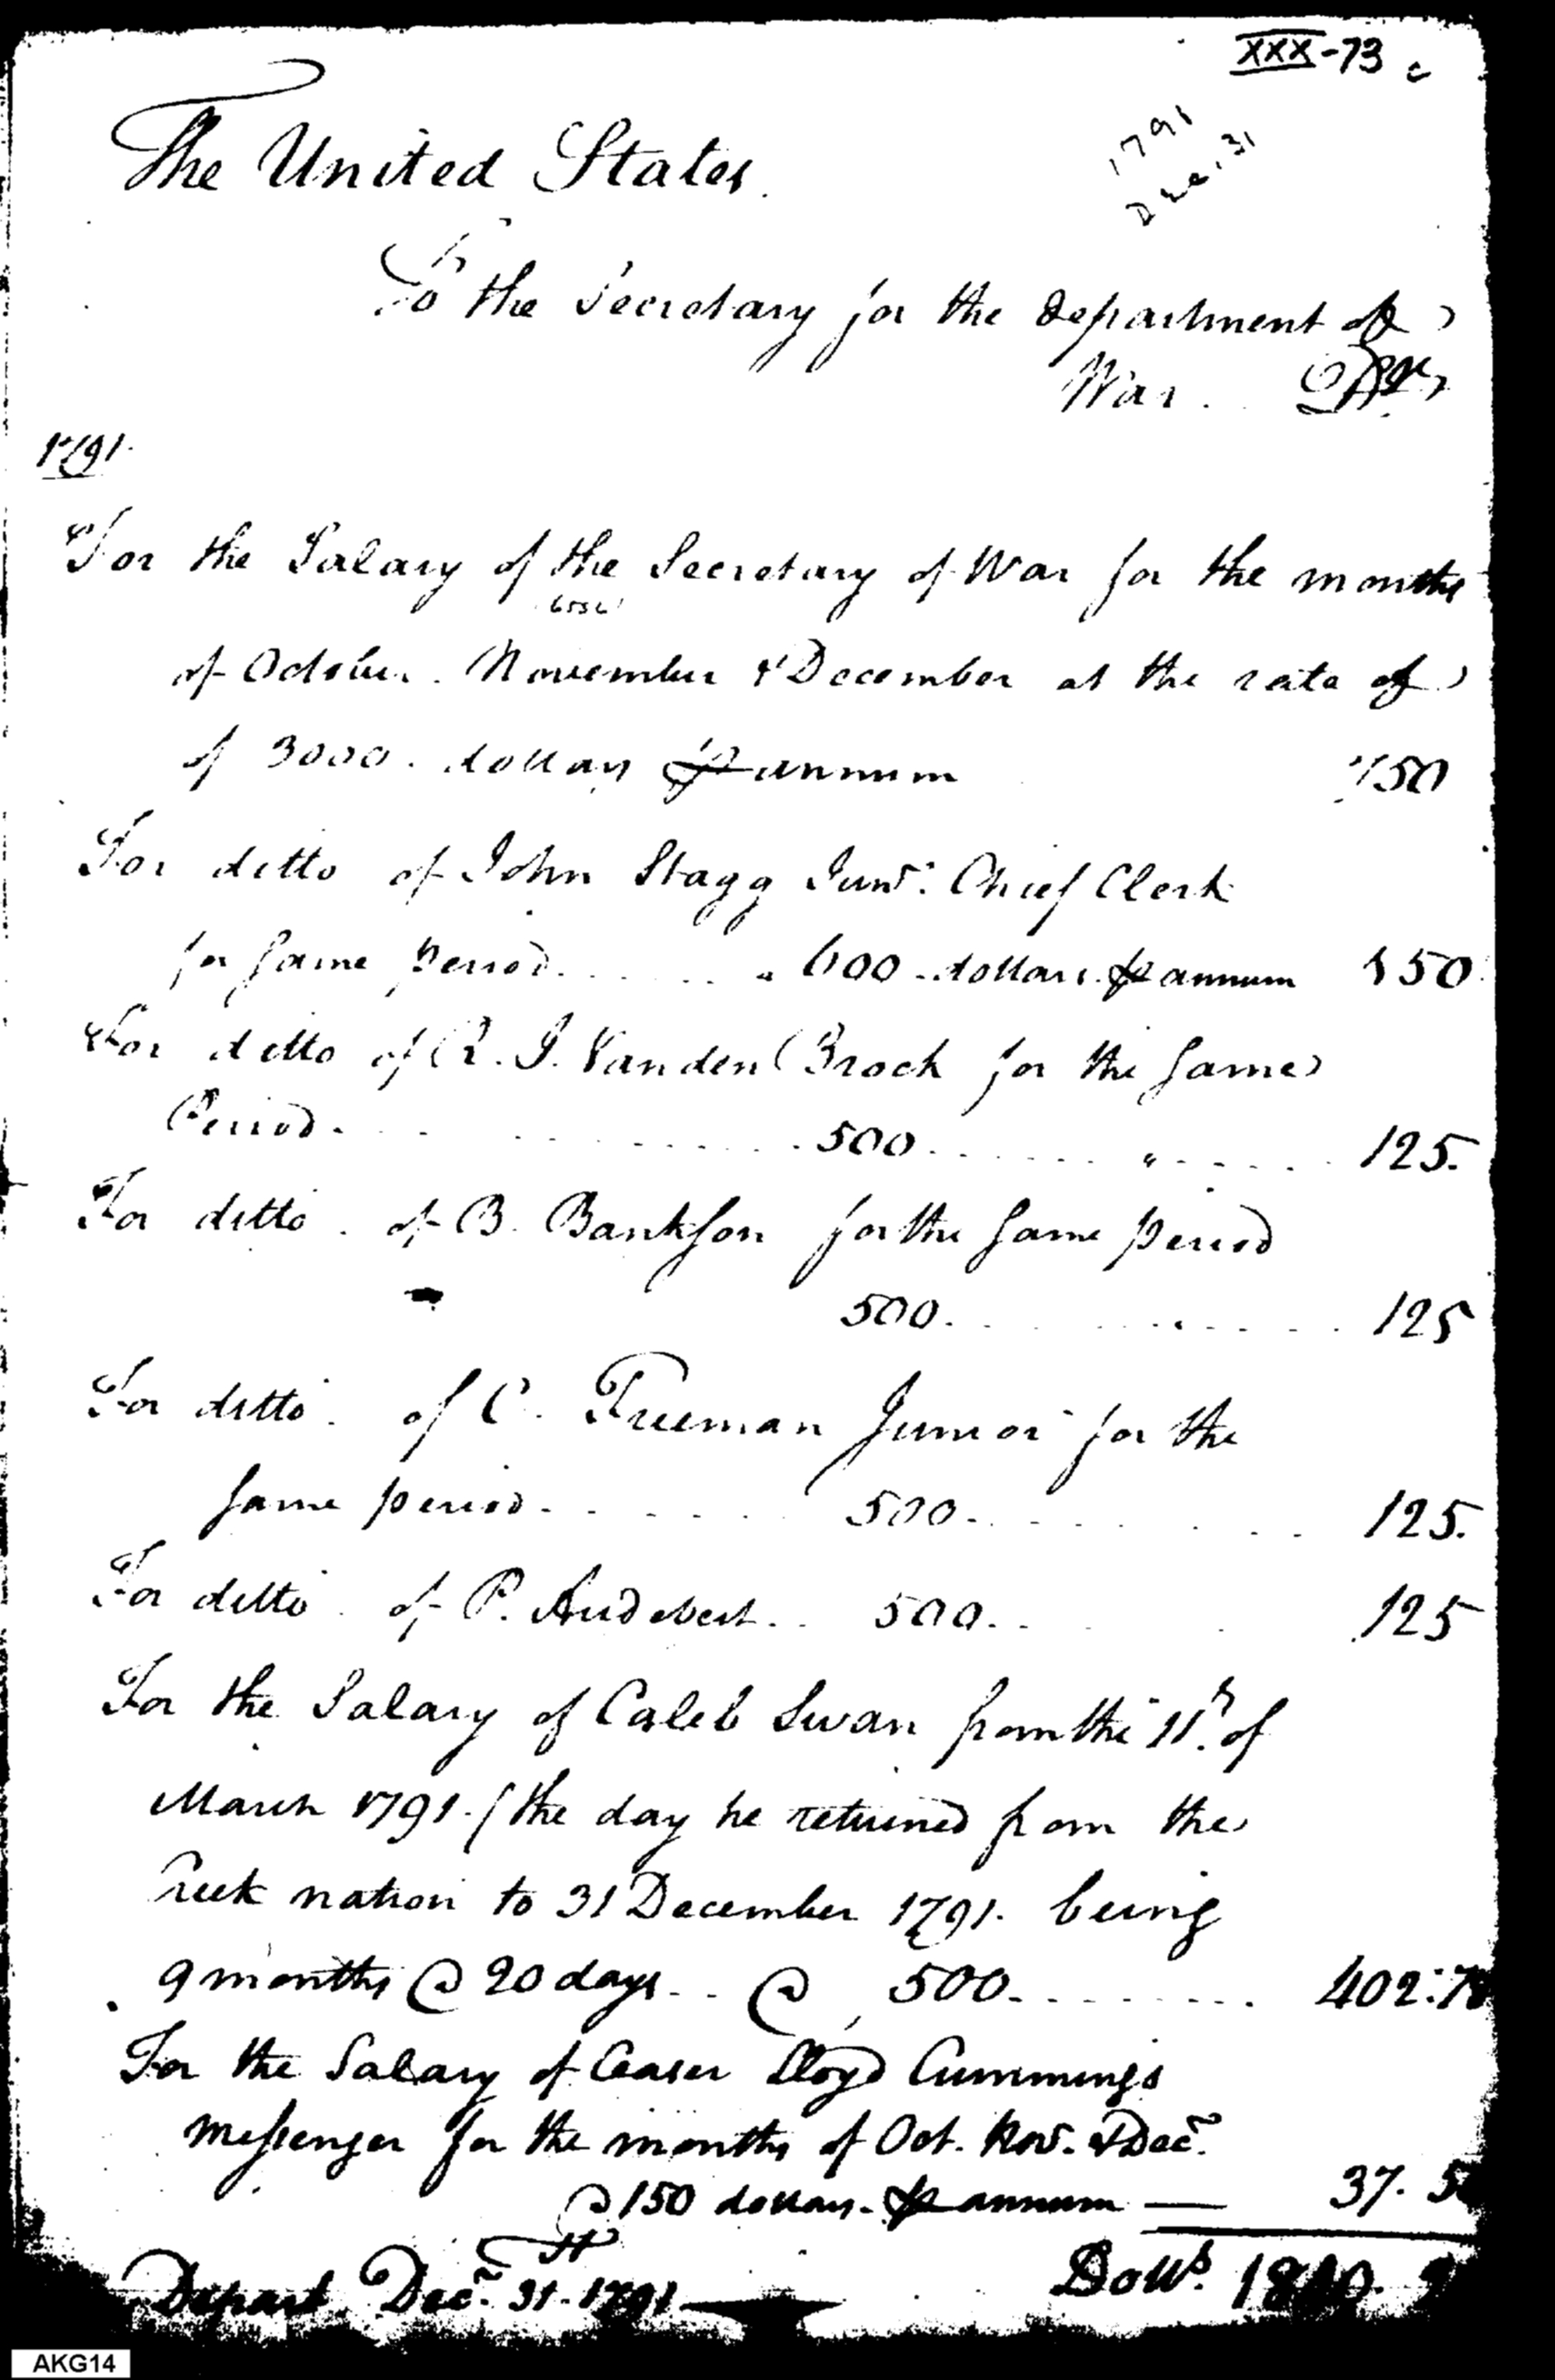 XXX-73 c
1791
Dec. 31
The United States
To the Secretary for the department of
War. Drs
1791.
For the Salary of the Secretary of War for the months
of October. November & December at the rate of
of 3000. dollars ⅌ annum 750
For ditto of John Stagg Junr. Chief Clerk
for same period . . . . . 600 dollars ⅌ annum 150
For ditto of R. J. Vanden Broek for the same
Period . . . . . 500 . . . . . " . . . . . 125.
For ditto of B. Bankson for the same period
500 . . . . . 125
For ditto of C. Freeman Junior for the
same period . . . . . 500 . . . . . 125.
For ditto of P. Audebert . . 500 . . 125
For the Salary of Caleb Swan from the 11th. of
March 1791. (the day he returned from the
Creek nation to 31 December 1791. being
9 months @ 20 days . . @ 500 . . . . . 402:7
For the Salary of Ceaser Lloyd Cummings
messenger for the months of Oct. Nov. & Decr.
@ 150 dollars ⅌ annum — 37. 5
Depart Decr. 31. 1791 Dolls.
AKG14